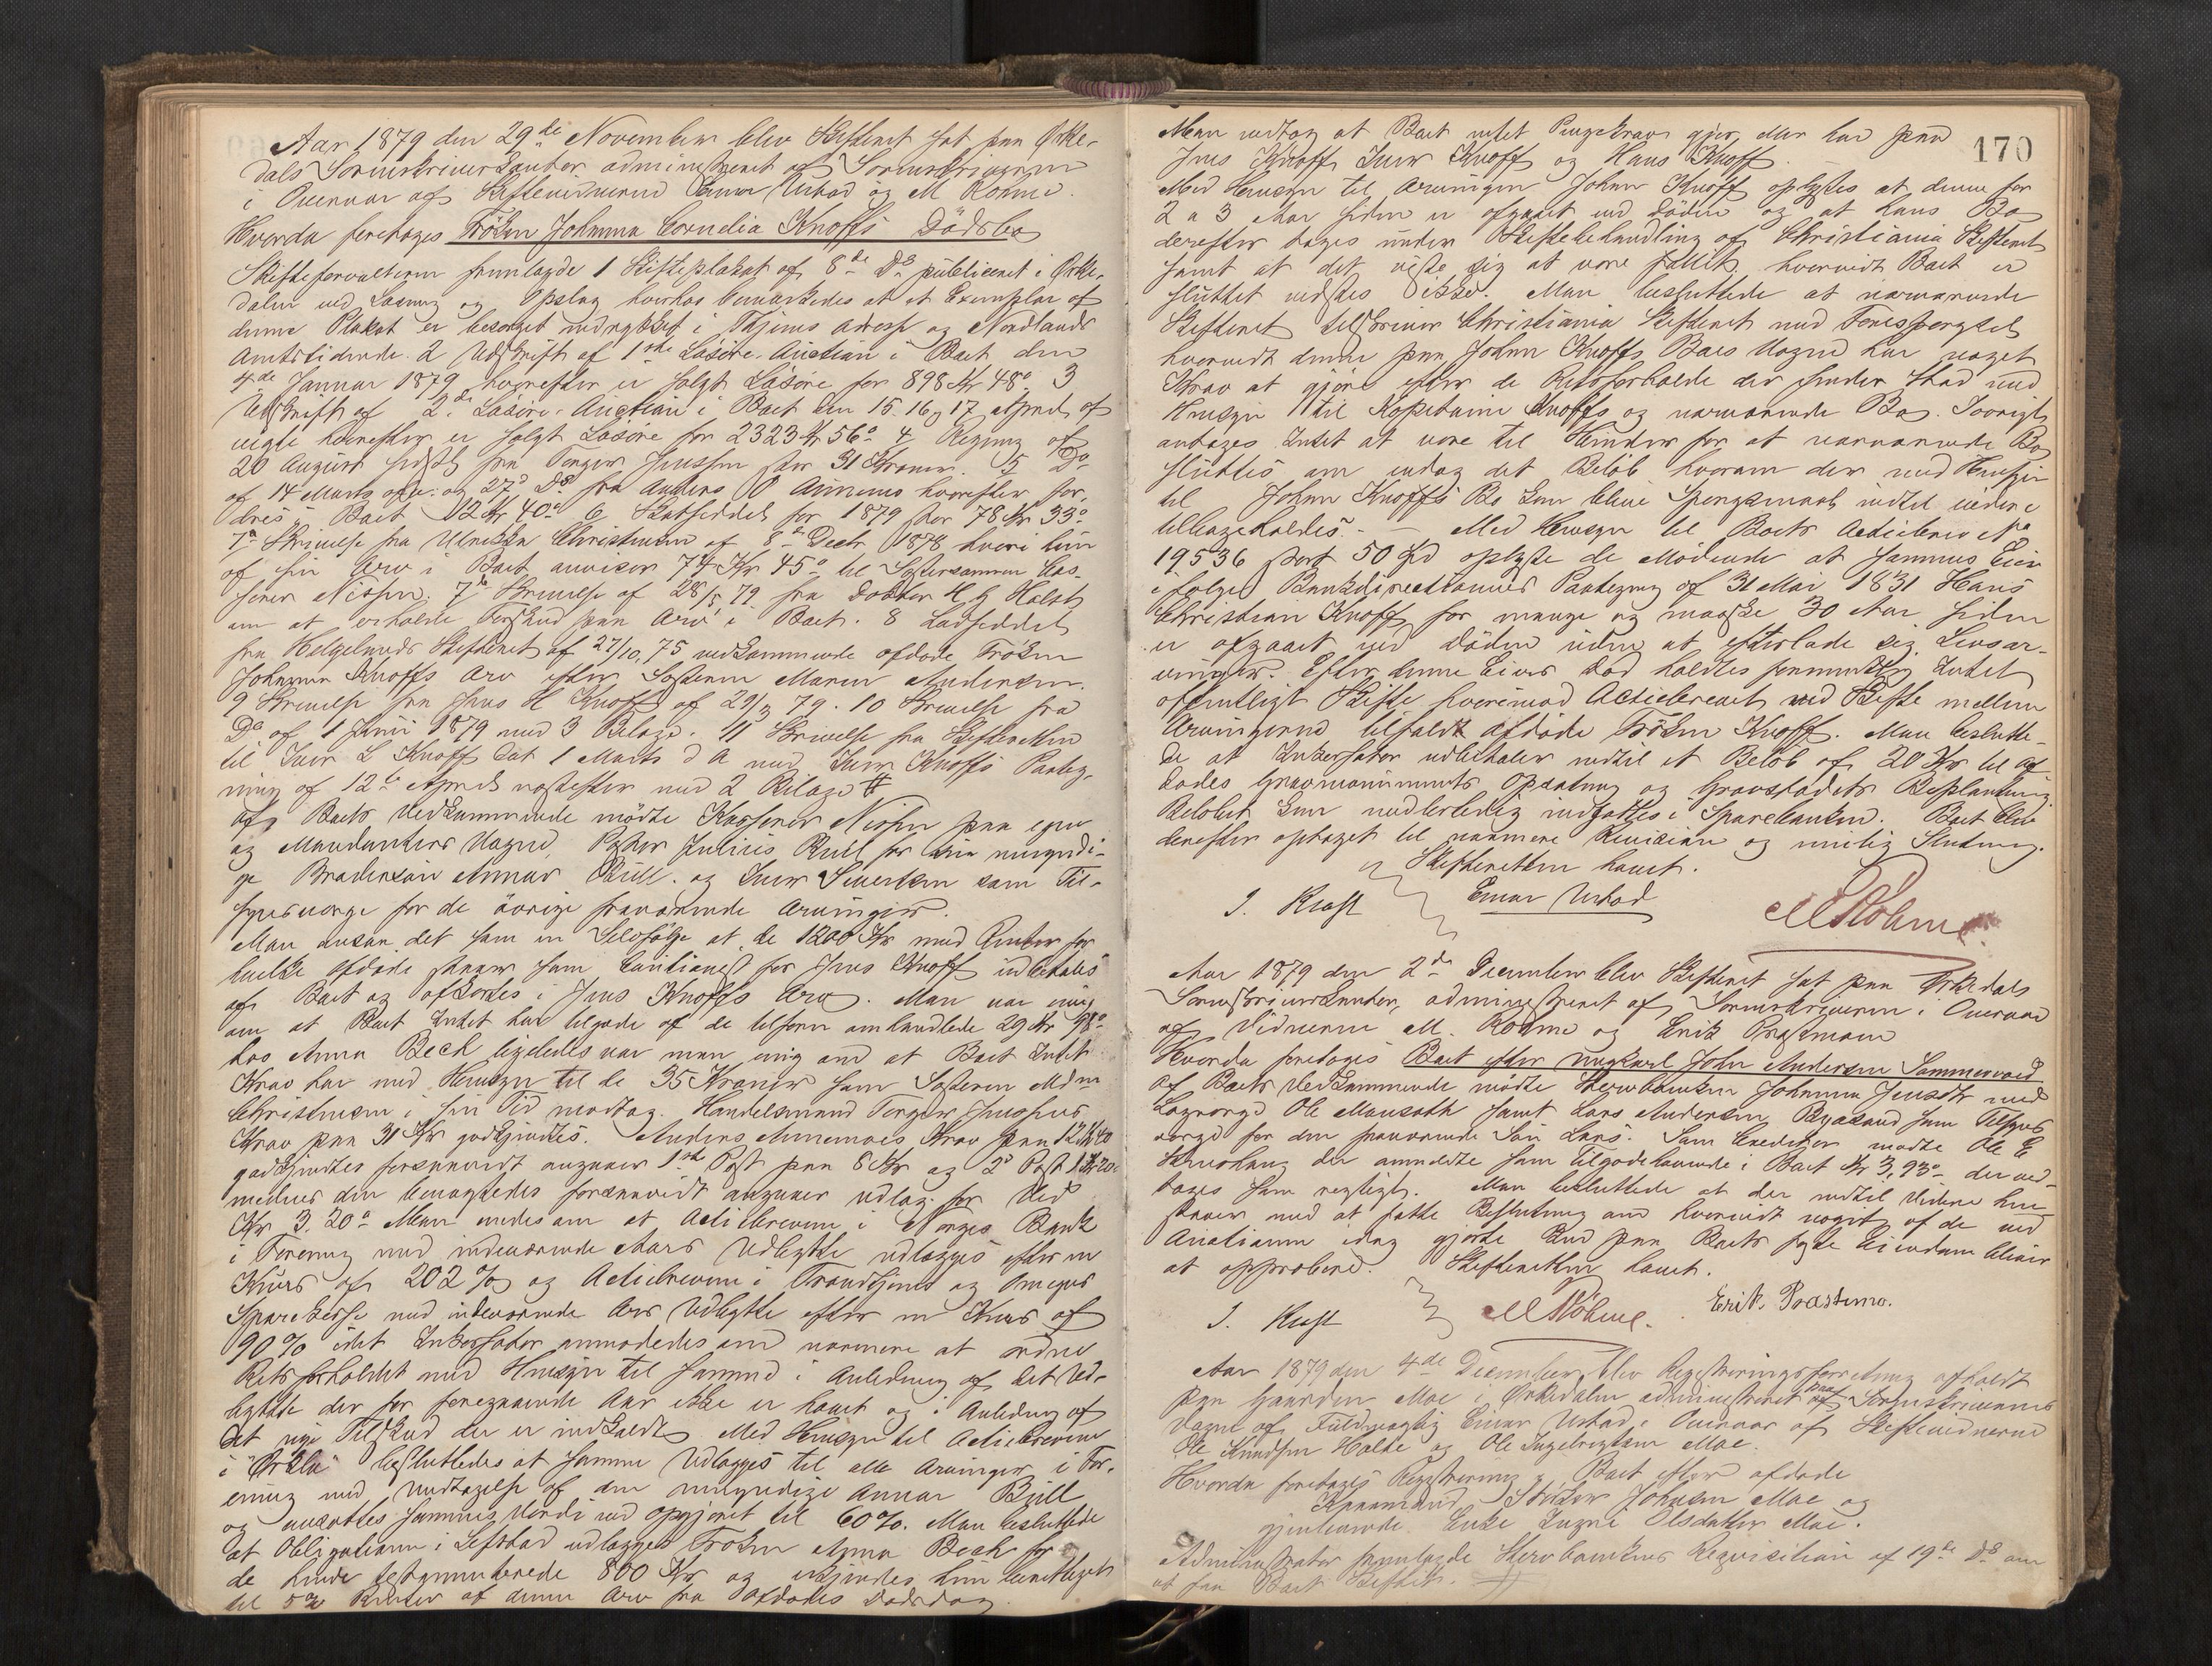 Aar 1879 den 29de November blev Skifteret sat paa Orke-
dals Sorenskriverkontor administreret af Sorenskriveren
i Overvær af Skiftevidnerne Einar Ustad og M Rohme.
Hvorda foretages Frøken Johanna Cornelia Knoffs Dødsbo
Skifteforvalteren fremlagde 1 Skifteplakat af 8de Ds publiceret i Orke-
dalen ved Læsning og Opslag hvorhos bemærkedes at et Exemplar af
denne Plakat er besørget indrykket i Thjems Adresse og Nordlands
Amtstidende. 2 Udskrift af 1ste Løsøre-Auction i Boet den
4de Januar 1879 hvorefter er solgt Løsøre for 898 Kr 48 ø 3
Udskrift af 2de Løsøre-Auction i Boet den 15. 16 og 17 April af
hvorefter er solgt Løsøre for 2323 Kr 56 ø 4 Regning af
20 August sidstl fra Torger Jenssen stor 31 Kroner. 5 Do
af 14 Marts og 27d Ds fra Anders O Aunemo hvorefter for-
dres i Boet 12 Kr 40 ø 6 Skatseddel for 1879 stor 78 Kr 33 ø
7a Skrivelse fra Ulrikka Christensen af 8de Decbr 1878 hvori hun
af sin Arv i Boet anviser 74 Kr 45 ø til Søstersønnen Kas-
serer Nissen. 7b Skrivelse af 28/5 79 fra Doktor H. H Holst
om at erholde Forskud paa Arv i Boet. 8 Lodseddel
fra Helgelands Skifteret af 27/10, 75 vedkommende afdøde Frøken
Johanna Knoffs Arv efter Søsteren Maren Andersen.
9 Skrivelse fra Jens H Knoff af 29/3 79. 10 Skrivelse fra
Do af 1 Juni 1879 med 3 Bilage. 11 Skrivelse fra Skifteretten
til Iver L Knoff dat 1 Marts d A med Iver Knoffs Paateg-
ning af 12te April næstefter med 2 Bilage #
Af Boets Vedkommende mødte Kasserer Nissen paa egne
og Mandanters Vegne, Pastor Julius Bull for sin umyndi-
ge Brodersøn Annar Bull. og Iver Sivertsen som Til-
synsværge for de øvrige fraværende Arvinger.
Man ansaa det som en Selvfølge at de 1200 Kr med Renter for
hvilke Afdøde staaer som Cautionist for Jens Knoff udbetales
af Boet og afkortes i Jens Knoffs Arv. Man var enig
om at Boet Intet har tilgode af de tilforn omhandlede 29 Kr 98 ø
hos Anna Beck ligeledes var man enig om at Boet Intet
Krav har med Hensyn til de 35 Kroner som Søsteren Mdm
Christensen i sin Tid modtog. Handelsmand Torger Jenssens
Krav paa 31 Kr godkjendtes. Anders Aunemoes Krav paa 12 Kr 40
godkjendtes forsaavidt angaaer 1ste Post paa 8 Kr og 2d Post 1 Kr 20 ø
medens den benægtedes forsaavidt angaaer Udlæg for Ved
Kr 3. 20 ø Man enedes om at Actiebrevene i Norges Bank
i Forening med indeværende Aars Udbytte udlægges efter en
Kurs af 202 % og Actiebrevene i Trondhjems og Omegns
Sparekasse med indeværende Aars Udbytte efter en Kurs af
90 % idet Inkassator anmodedes om nærmere at ordne
Retsforholdet med Hensyn til Samme i Anledning af det Ud-
bytte der for foregaaende Aar ikke er hævet og i Anledning af
det nye Tilskud der er indkaldt. Med Hensyn til Actiebrevene
i "Orkla" besluttedes at Samme Udlægges til alle Arvinger i For-
ening med Undtagelse af den umyndige Annar Bull
og ansattes sammes Værdi ved Opgjøret til 60 %. Man besluttede
at Obligationen i Lefstad udlægges Frøken Anna Beck for
de hende testamenterede 800 Kr og tilkjendtes hun berettiget
til 5 % Renter af denne Arv fra Afdødes Dødsdag
170
Man vedtog at Boet intet Pengekrav gjør, der har paa
Jens Knoff, Iver Knoff og Hans Knoff.
Med Hensyn til Arvingen Johan Knoff oplystes at denne for
2 a 3 Aar siden er afgaaet ved Døden og at hans Bo
derefter toges under Skiftebehandling af Christiania Skifteret
samt at det viste sig at være fallit, hvorvidt Boet er
sluttet vidstes ikke. Man besluttede at nærværende
Skifteret tilskriver Christiania Skifteret med Forespørgsel
hvorvidt denne paa Johan Knoffs Boes Vegne har noget
Krav at gjøre efter de Retsforholde der finder Sted med
Hensyn til Kapitaine Knoffs og nærværende Bo. Iøvrigt
antages Intet at være til Hinder for at nærværende Bo
sluttes om endog det Beløb hvorom der med Hensyn
til Johan Knoffs Bo kan blive Spørgsmaal indtil videre
tilbageholdes. - Med Hensyn til Boets Actiebrev No
19536 stort 50 Spd oplyste de Mødende at sammes Eier
ifølge Bankdirectionens Paategning af 31 Mai 1831 Hans
Christian Knoff for mange og maaske 30 Aar siden
er afgaaet ved Døden uden at efterlade sig Livsar-
vinger. Efter denne Eiers Død holdtes formentlig Intet
offentligt Skifte hvorimod Actiebrevet ved Skifte mellem
Arvingerne tilfaldt afdøde Frøken Knoff. Man beslutte-
de at Inkassator udbetaler indtil et Beløb af 20 Kr til Af-
dødes Gravmonuments Opsætning og Gravstedets Beplantning
Beløbet kan midlertidig indsættes i Sparebanken. Boet blev
derefter optaget til nærmere Revision og mulig Slutning.
Skifteretten hævet.
J. Kraft Einar Ustad M Rohme.
Aar 1879 den 2de December blev Skifteret sat paa Orkedals
Sorenskriverkontor, administreret af Sorenskriveren i Overvær
af Vidnerne M. Rohme og Erik Præstmoen
Hvorda foretages Boet efter Ungkarl John Andersen Sommervold
Af Boets Vedkommende mødte Stervboenken Johanna Jensdtr med
Lagværge Ole Mansæth samt Lars Andersen Ryasand som Tilsyns-
værge for den fraværende Søn Lars. Som Creditor mødte Ole E
der anmeldte som Tilgodehavende i Boet Kr 3,93 ø der ved-
toges som rigtigt. Man besluttede at der indtil Videre hen-
staaer med at fatte Beslutning om hvorvidt noget af de ved
Auctionen idag gjorte Bud paa Boets faste Eiendom bliver
at approbere. Skifteretten hævet.
J. Kraft M Rohme. Erik. Præstmo.
Aar 1879 den 4de December blev Registreringsforretning afholdt
paa Gaarden Moe i Orkedalen administreret paa Sorenskriverens
Vegne af Fuldmægtig Einar Ustad i Overvær af Skiftevidnerne
Ole Knudsen Holte og Ole Ingebrigtsen Moe.
Hvorda foretages Registrering i Boet efter afdøde
Kaarmand Johnsen Moe og
gjenlevende Enke Ingri Olsdatter Moe.
Administrator fremlagde Stervboenkens Requisition af 19de Ds om
at faa Boet Skiftet.